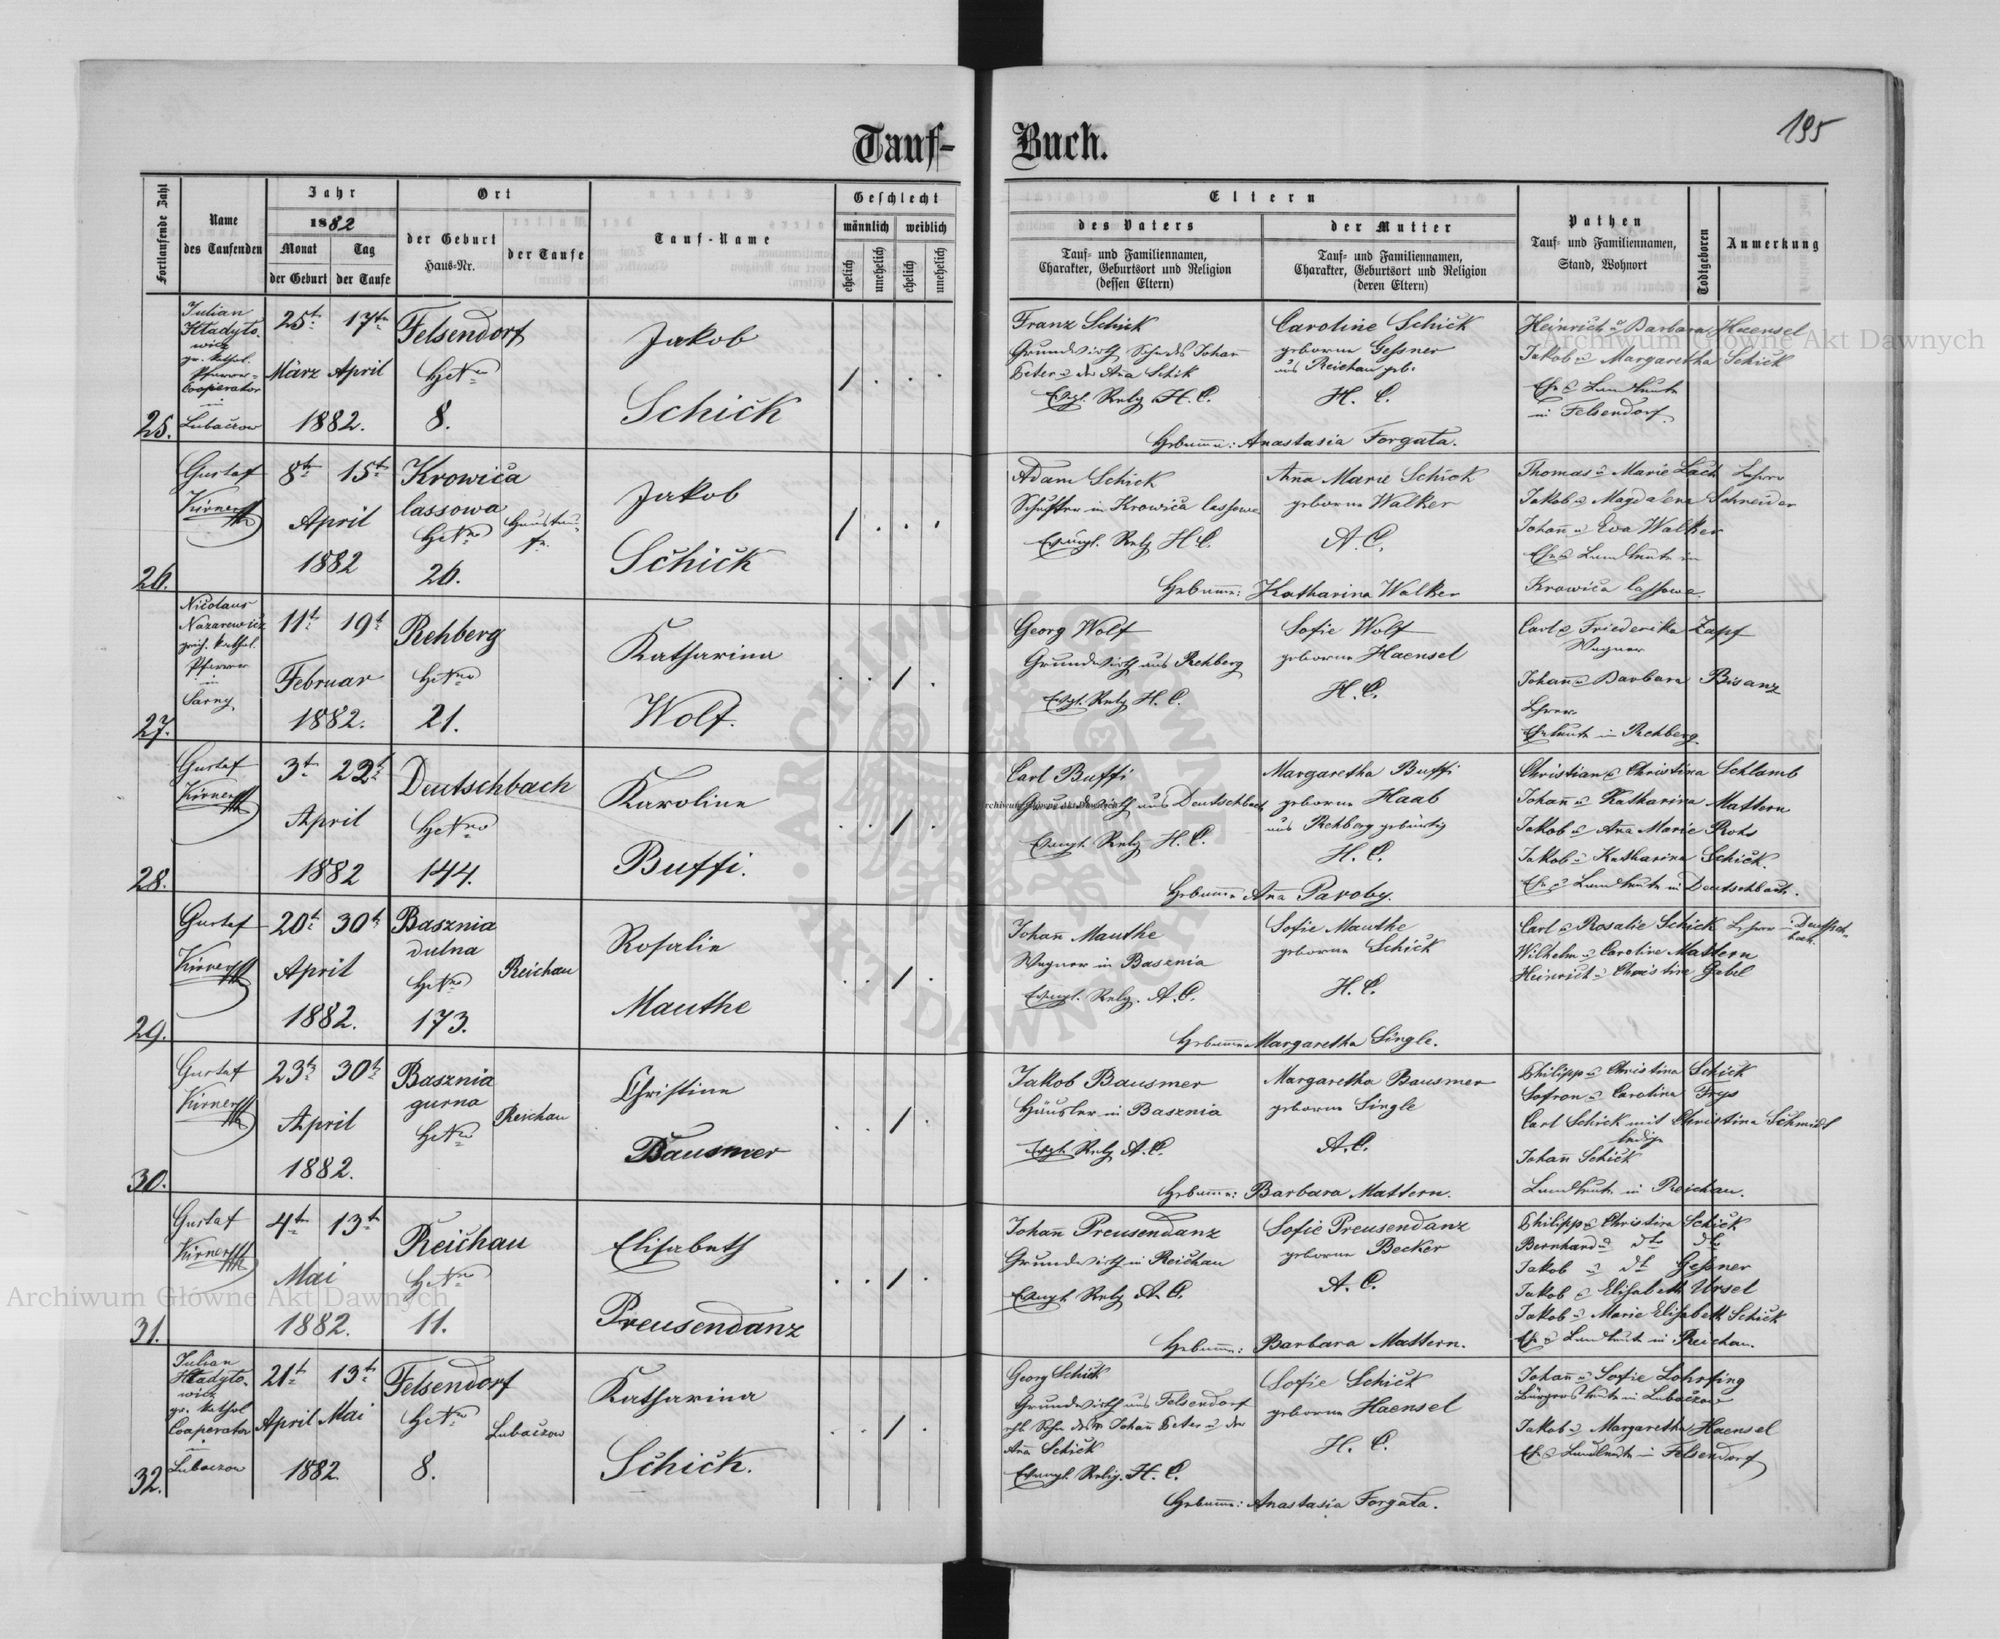 195
Tauf- Buch.
Fortlaufende Zahl
Name
des Taufenden
Jahr
1882
Monat
Tag
der Geburt
der Taufe
Ort
der Geburt
Haus-Nr.
der Taufe
Tauf-Name
Geschlecht
männlich
weiblich
ehelich
unehelich
ehelich
unehelich
Eltern
des Vaters
Tauf- und Familiennamen,
Charakter, Geburtsort und Religion
(dessen Eltern)
der Mutter
Tauf- und Familiennamen,
Charakter, Geburtsort und Religion
(deren Eltern)
Pathen
Tauf- und Familiennamen,
Stand, Wohnort
Todtgeboren
Anmerkung
25.
Julian
Hladyto-
wicz
gr. kathol.
Pfarrer-
Cooperator
in
Lubaczow
25t 17tn
März April
1882.
Felsendorf
HsNro
8.
Jakob
Schick
Franz Schick
Grundwirth Sohn des Johann
Peter u der Ana Schik
Evgl. Relg H. C.
Caroline Schick
geborne Gessner
aus Reichau geb.
H. C.
Hebamme: Anastasia Forgata.
Heinrich u Barbara Haensel
Jakob u Margaretha Schick
Ehe u Landleute
in Felsendorf
26.
Gustaf
Kirner
8tn 15tn
April
1882
Krowica
lassowa
HsNro
26.
Haustau-
fe.
Jakob
Schick
Adam Schick
Schuster in Krowica lassowa
Evangl. Relg H.C.
Anna Marie Schick
geborne Walker
A.C.
Hebamme: Katharina Walker
Thomas u Marie Lach Lehrer
Jakob u Magdalena Schneider
Johann u Eva Walker
Ehe u Landleute in
Krowica lassowa
27.
Nicolaus
Nazarewicz
griech. kathol.
Pfarrer
in
Sarny
11t 19t
Februar
1882.
Rehberg
HsNro
21.
Katharina
Wolf.
Georg Wolf
Grundwirth aus Rehberg
Evgl. Relg H. C.
Sofie Wolf
geborne Haensel
H. C.
Carl u Friederika Zapf
Wagner
Johann u Barbara Bisanz
Lehrer
Eheleute in Rehberg
28.
Gustaf
Kirner
3t 22t
April
1882
Deutschbach
HsNro
144.
Karoline
Buffi.
Carl Buffi
Grundwirth aus Deutschbach
Evangl. Relg H. C.
Margaretha Buffi
geborne Haab
aus Rehberg gebürtig
H. C.
Hebamme Ana Paroby.
Christian u Christina Schlamb
Johann u Katharina Mattern
Jakob u Ana Marie Rohs
Jakob u Katharina Schick
Ehe u Landleute in Deutschbach.
29.
Gustaf
Kirner
20t 30t
April
1882.
Basznia
dulna
HsNro
173.
Reichau
Rosalie
Mauthe
Johann Mauthe
Wagner in Basznia
Evangl. Relg. A.C.
Sofie Mauthe
geborne Schick
H.C.
Hebamme Margaretha Single.
Carl u Rosalie Schick Lehrer in Deutsch-
bach.
Wilhelm u Caroline Mattern
Heinrich u Christine Gabel
30.
Gustaf
Kirner
23t 30t
April
1882.
Basznia
gurna
HsNro
Reichau
Christine
Bausmer
Jakob Bausmer
Häusler in Basznia
Evgl. Relg A.C.
Margaretha Bausmer
geborne Single
A.C.
Hebamme: Barbara Mattern.
Philipp u Christina Schick
Sofron u Carolina Frys
Carl Schick mit Christina Schmidt
ledige
Johann Schick
Landleute in Reichau.
31.
Gustaf
Kirner
4tn 13tn
Mai
1882.
Reichau
HsNro
11.
Elisabeth
Preusendanz
Johann Preusendanz
Grundwirth in Reichau
Evangl. Relg A.C.
Sofie Preusendanz
geborne Becker
A.C.
Hebamme: Barbara Mattern.
Philipp u Christina Schick
Bernhard u dto dto
Jakob u dt Gessner
Jakob u Elisabeth Ursel
Jakob u Marie Elisabeth Schick
Ehe u Landleute in Reichau.
32.
Julian
Hladyto-
wicz
gr. kathol
Cooperator
in
Lubaczow
21t 13t
April Mai
1882
Felsendorf
HsNro
8.
Lubaczow
Katharina
Schick.
Georg Schick
Grundwirth aus Felsendorf
ehl Sohn des Johann Peter u der
Ana Schick
Evangl. Relig. H. C.
Sofie Schick
geborne Haensel
H. C.
Hebamme: Anastasia Forgata.
Johann u Sofie Lohrfing
Bürgersleute in Lubaczow
Jakob u Margaretha Haensel
Ehe u Landleute in Felsendorf
Archiwum Główne Akt Dawnych
Archiwum Główne Akt Dawnych
Archiwum Główne Akt Dawnych
ARCHIWUM GŁÓWNE AKT DAWNYCH